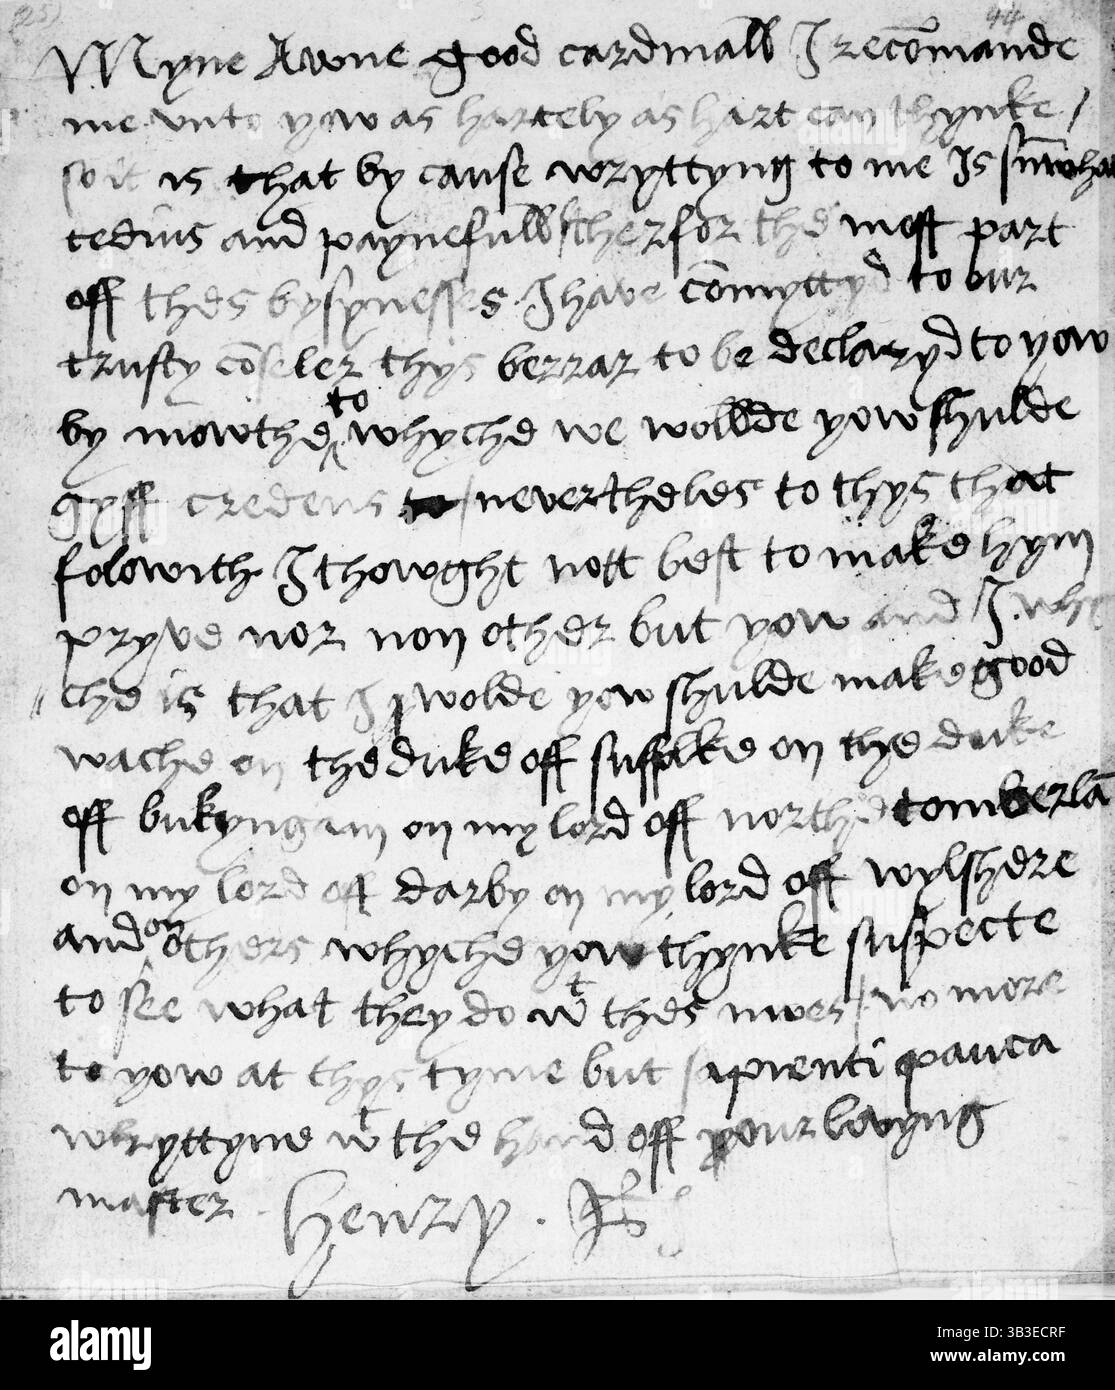 (25)
44
Myne Awne good cardinall I recōmande
me unto yow as hartely as hart can thynke /
so it is that by cause wryttyng to me is sūwhat
tedius and paynefull / therfor the most part
off thes bysynesses I have cōmyttyd to our
trusty cōseler thys berrar to be declaryd to yow
by mowthe ^to whyche we wollde yow shulde
gyff credens / neverthelес to thys that
folowith I thowght nott best to make hym
pryve nor non other but yow and I why
che is that I wolde yow shulde make good
wache on the duke off suffolke on the duke
off bukyngam on my lord off northecomberlā
on my lord off darby on my lord off wylshere
and ^on others whyche yow thynke suspecte
to see what they do wt thes nwes / no more
to yow at thys tyme but sapienti pauca
wryttyne wt the hand off your lovyng
master . Henry . R
alamy
Image ID: 3B3ECRF
www.alamy.com